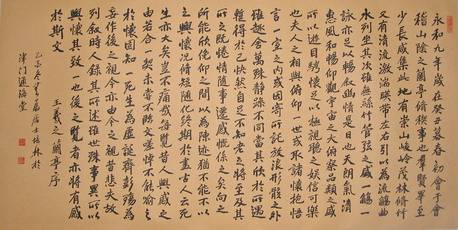 永和九年歲在癸丑暮春初會于會
稽山陰之蘭亭脩稧事也群賢畢至
少長咸集此地有崇山峻岭茂林脩竹
又有清流激湍暎帶左右引以為流觴曲
水列坐其次雖無絲竹管弦之盛一觴一
詠亦足以暢叙幽情是日也天朗氣清
惠風和暢仰觀宇宙之大俯察品類之盛
所以遊目騁懷足以極視聽之娛信可樂
也夫人之相與俯仰一世或取諸懷抱悟
言一室之內或因寄所託放浪形骸之外
雖趣舍萬殊靜躁不同當其欣於所遇
暫得於己快然自足不知老之將至及其
所之既倦情隨事遷感慨係之矣向之
所欣俛仰之間以為陳迹猶不能不以
之興懷況脩短隨化終期於盡古人云死
生亦大矣豈不痛哉每攬昔人興感之
由若合一契未嘗不臨文嗟悼不能喻之
於懷固知一死生為虛誕齊彭殤為
妄作後之視今亦由今之視昔悲夫故
列叙時人錄其所述雖世殊事異所以
興懷其致一也後之攬者亦將有感
於斯文 王羲之蘭亭序
居士培林於
津門通海堂